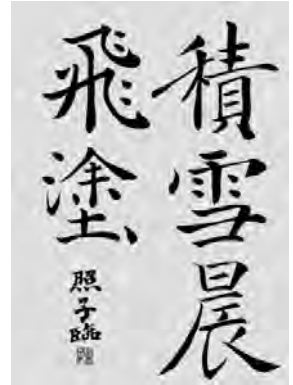 積雪晨
飛塗
照子臨